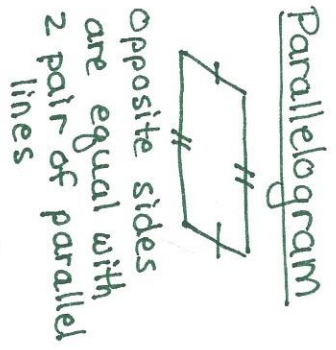 Parallelogram
opposite sides
are equal with
2 pair of parallel
lines